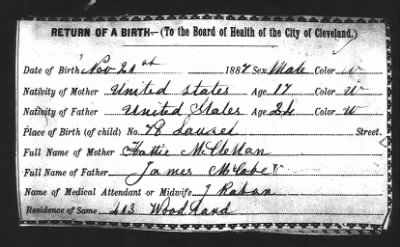 RETURN OF A BIRTH—(To the Board of Health of the City of Cleveland.)
Date of Birth Nov 21st 1887 Sex Male Color W
Nativity of Mother United States Age 17 Color W
Nativity of Father United States Age 24 Color W
Place of Birth (of child) No. 78 Laurel Street.
Full Name of Mother Hattie McClellan
Full Name of Father James McCabe
Name of Medical Attendant or Midwife J Raban
Residence of Same 403 Woodland